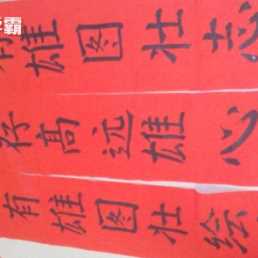 霸
雄图壮志
存高远雄心
有雄图壮绘